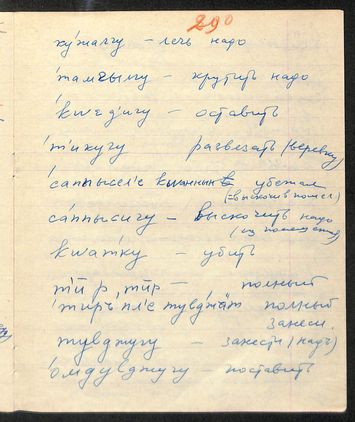 290
ку́жалгу – лечь надо
́тамгылгу – крутить надо
́кwед'игу – оставить
́т'икугу развезать (веревку)
́саппысел'е убежал
(=выскочив пошел)
са́ппысигу – выскочить надо
(из помещения)
кwатку – убить
тӣр, тӣр – полный
тиръ пл'е тувджӓт полный
занеси.
тувджугу – занести (надъ)
́омдувджугу – поставить